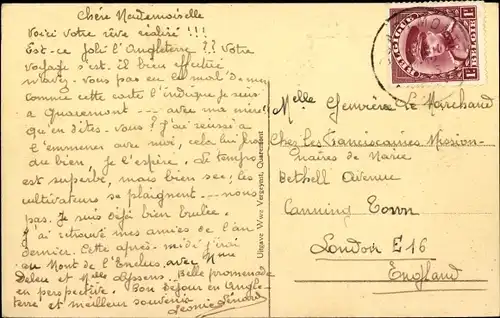 Chère Mademoiselle
Voici votre rêve réalisé !!!
Est-ce joli l'Angleterre ?? Votre
voyage s'est-il bien effectué
n'avez-vous pas eu de mal de mer
comme cette carte l'indique je suis
à Quaremont --- avec ma mère
qu'en dites-vous? J'ai réussi à
l'emmener avec moi, cela lui fera
du bien, je l'espère. Le temps
est superbe, mais bien sec; les
cultivateurs se plaignent --- nous
pas. Je suis déjà bien brulée.
J'ai retrouvé mes amies de l'an
dernier. Cette après-midi j'irai
au Mont de l'Enclus, avec Mme
Deleu et Melle. Belle promenade
en perspective. Bon séjour en Angle-
terre et meilleur souvenir
Léonie Lénard
Uitgave Wwe Vergeynst, Quaremont
BELGIQUE BELGIË
1F 1F
Melle Geneviève Le Marchand
Chez Les Franciscaines Mission-
naires de Marie
Bethell Avenue
Canning Town
London E16
England